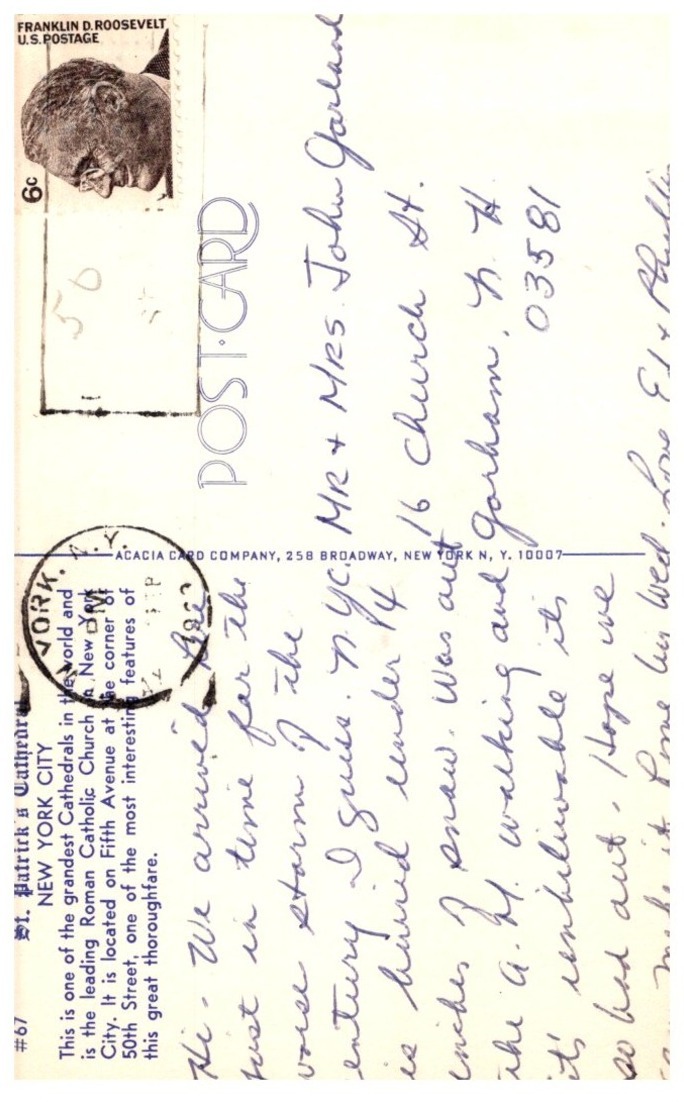 #67
St. Patrick's Cathedral
NEW YORK CITY
This is one of the grandest Cathedrals in the world and
is the leading Roman Catholic Church in New York
City. It is located on Fifth Avenue at the corner of
50th Street, one of the most interesting features of
this great thoroughfare.
Hi - We arrived
just in time for the
worse storm of the
entury I guess. N.Y.C.
is buried under 14
inches of snow. Was out
the A.M. walking and
it's unbelievable its
so bad out. Hope we
make it home by Wed. Love Ed + Phyllis
ACACIA CARD COMPANY, 258 BROADWAY, NEW YORK N, Y. 10007
YORK, N.Y.
PM
FRANKLIN D. ROOSEVELT
U.S. POSTAGE
6c
50
POST·CARD
MR + MRS. John Garland
16 Church St.
Gorham, N.H.
03581